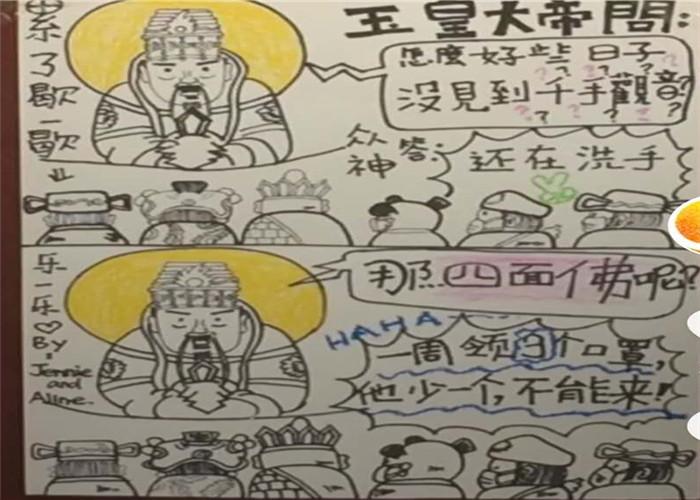 累了歇一歇
玉皇大帝問:
怎麼好些日子
沒見到千手觀音?
???????
众神答:
还在洗手
乐一乐♡
By:
Jennie
and
Aline.
那四面佛呢?
HAHA
一周领3个口罩,
他少一个,不能来!